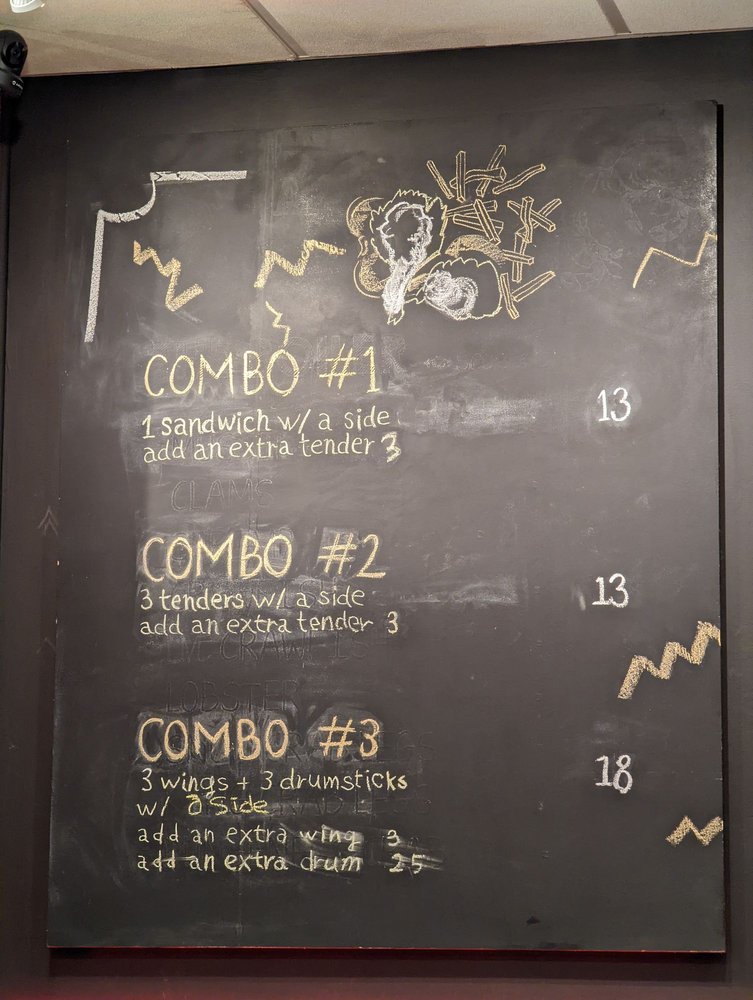 COMBO #1
1 sandwich w/ a side 13
add an extra tender 3
CLAMS
COMBO #2
3 tenders w/ a side 13
add an extra tender 3
LOBSTER
COMBO #3
3 wings + 3 drumsticks 18
w/ a side
add an extra wing 3
add an extra drum 25